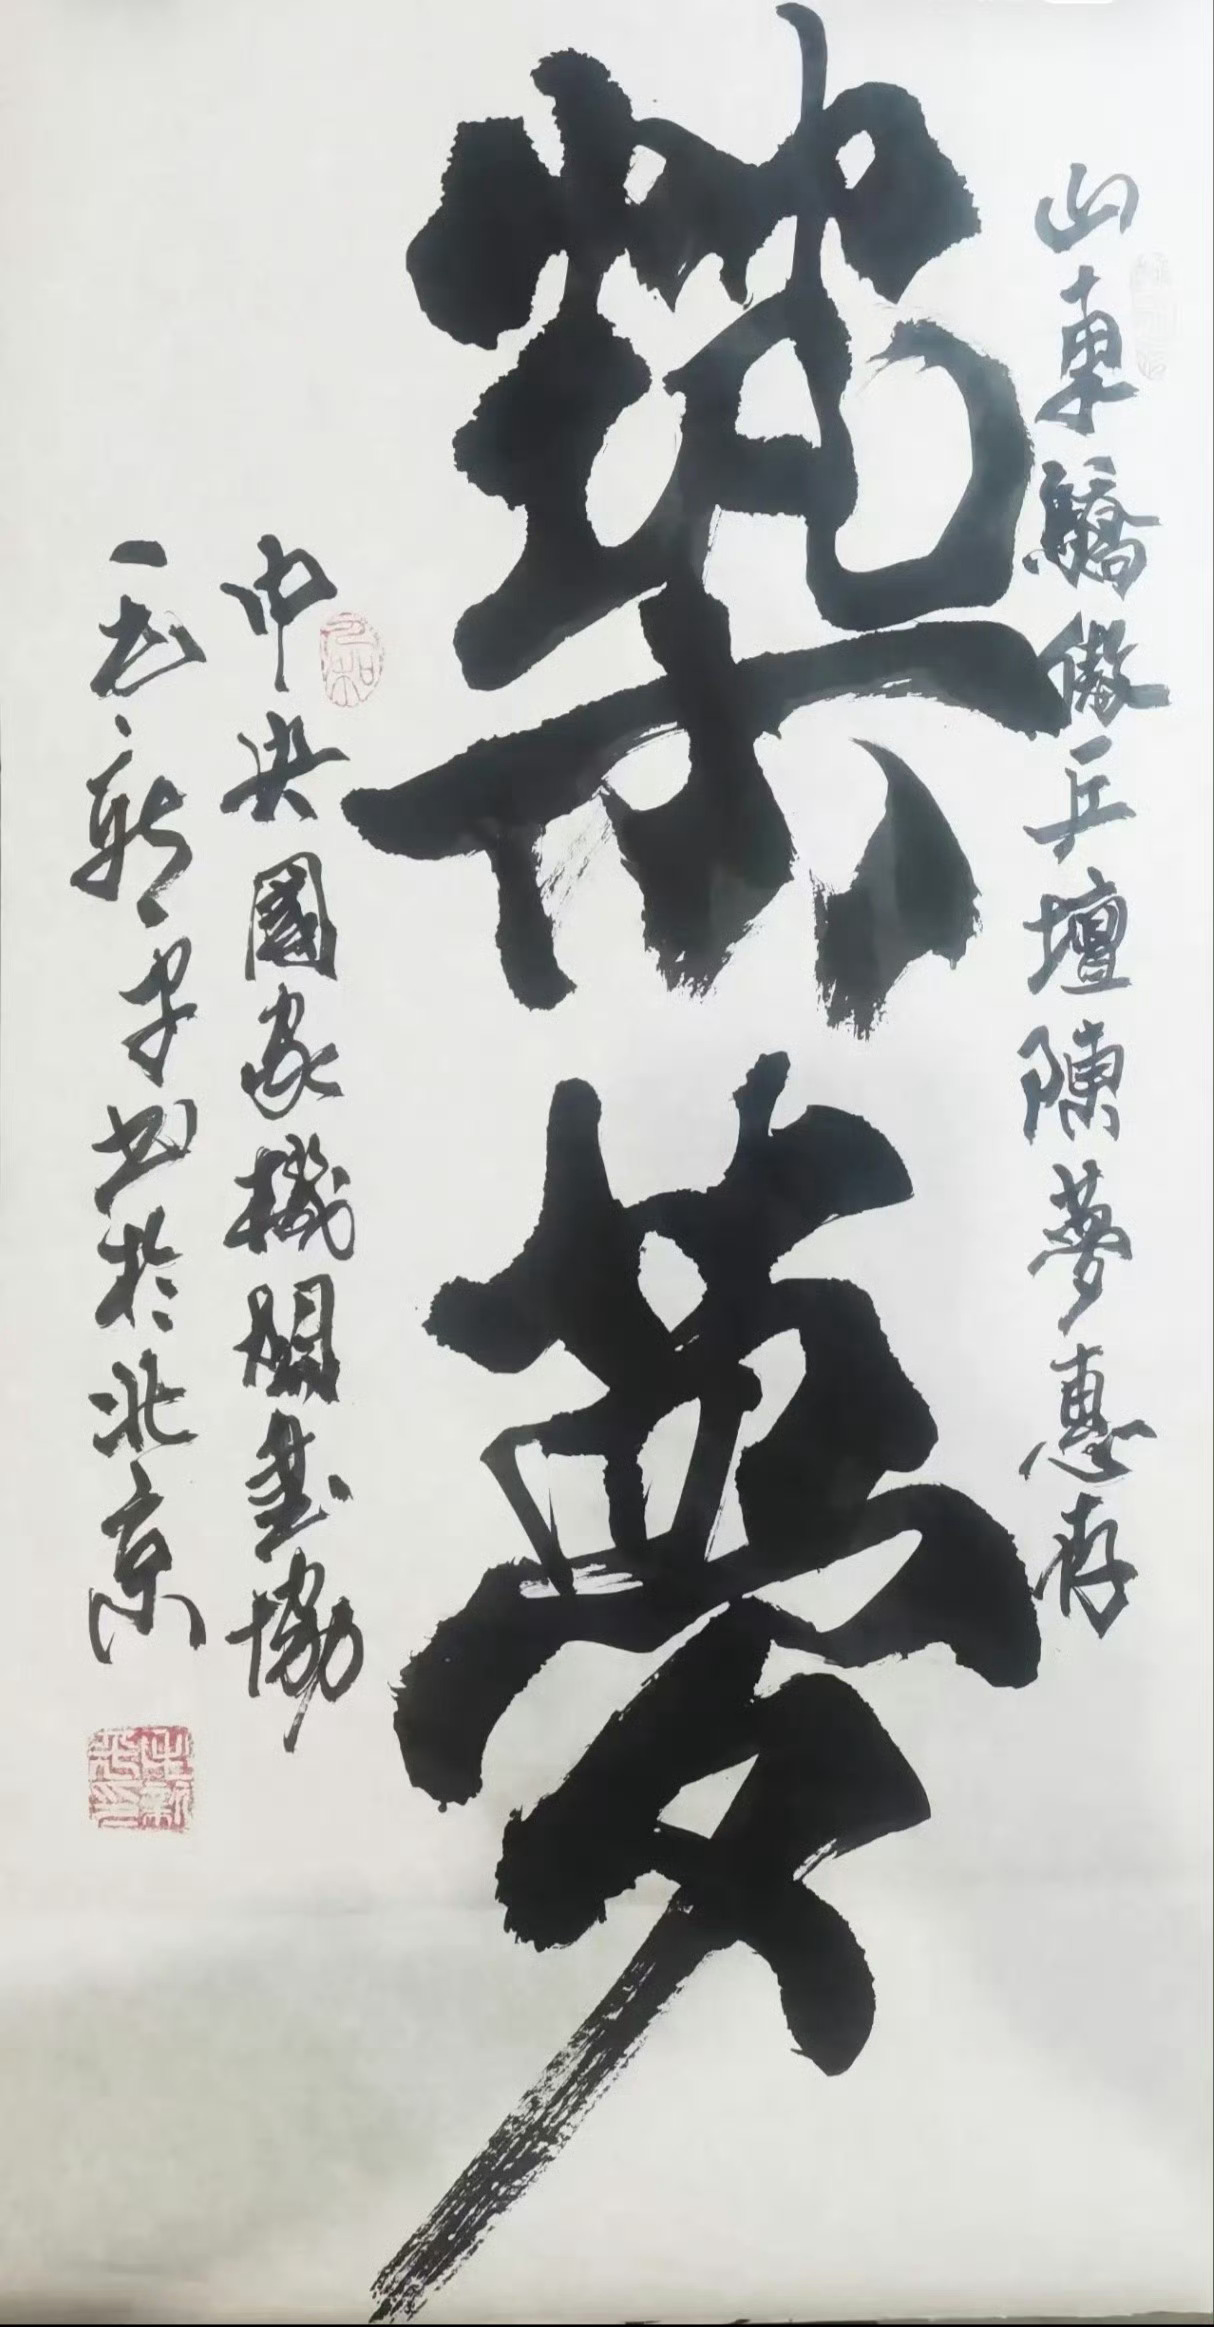 山東驕傲乒壇陳夢惠存
築夢
中央國家機關書協
新平書於北京